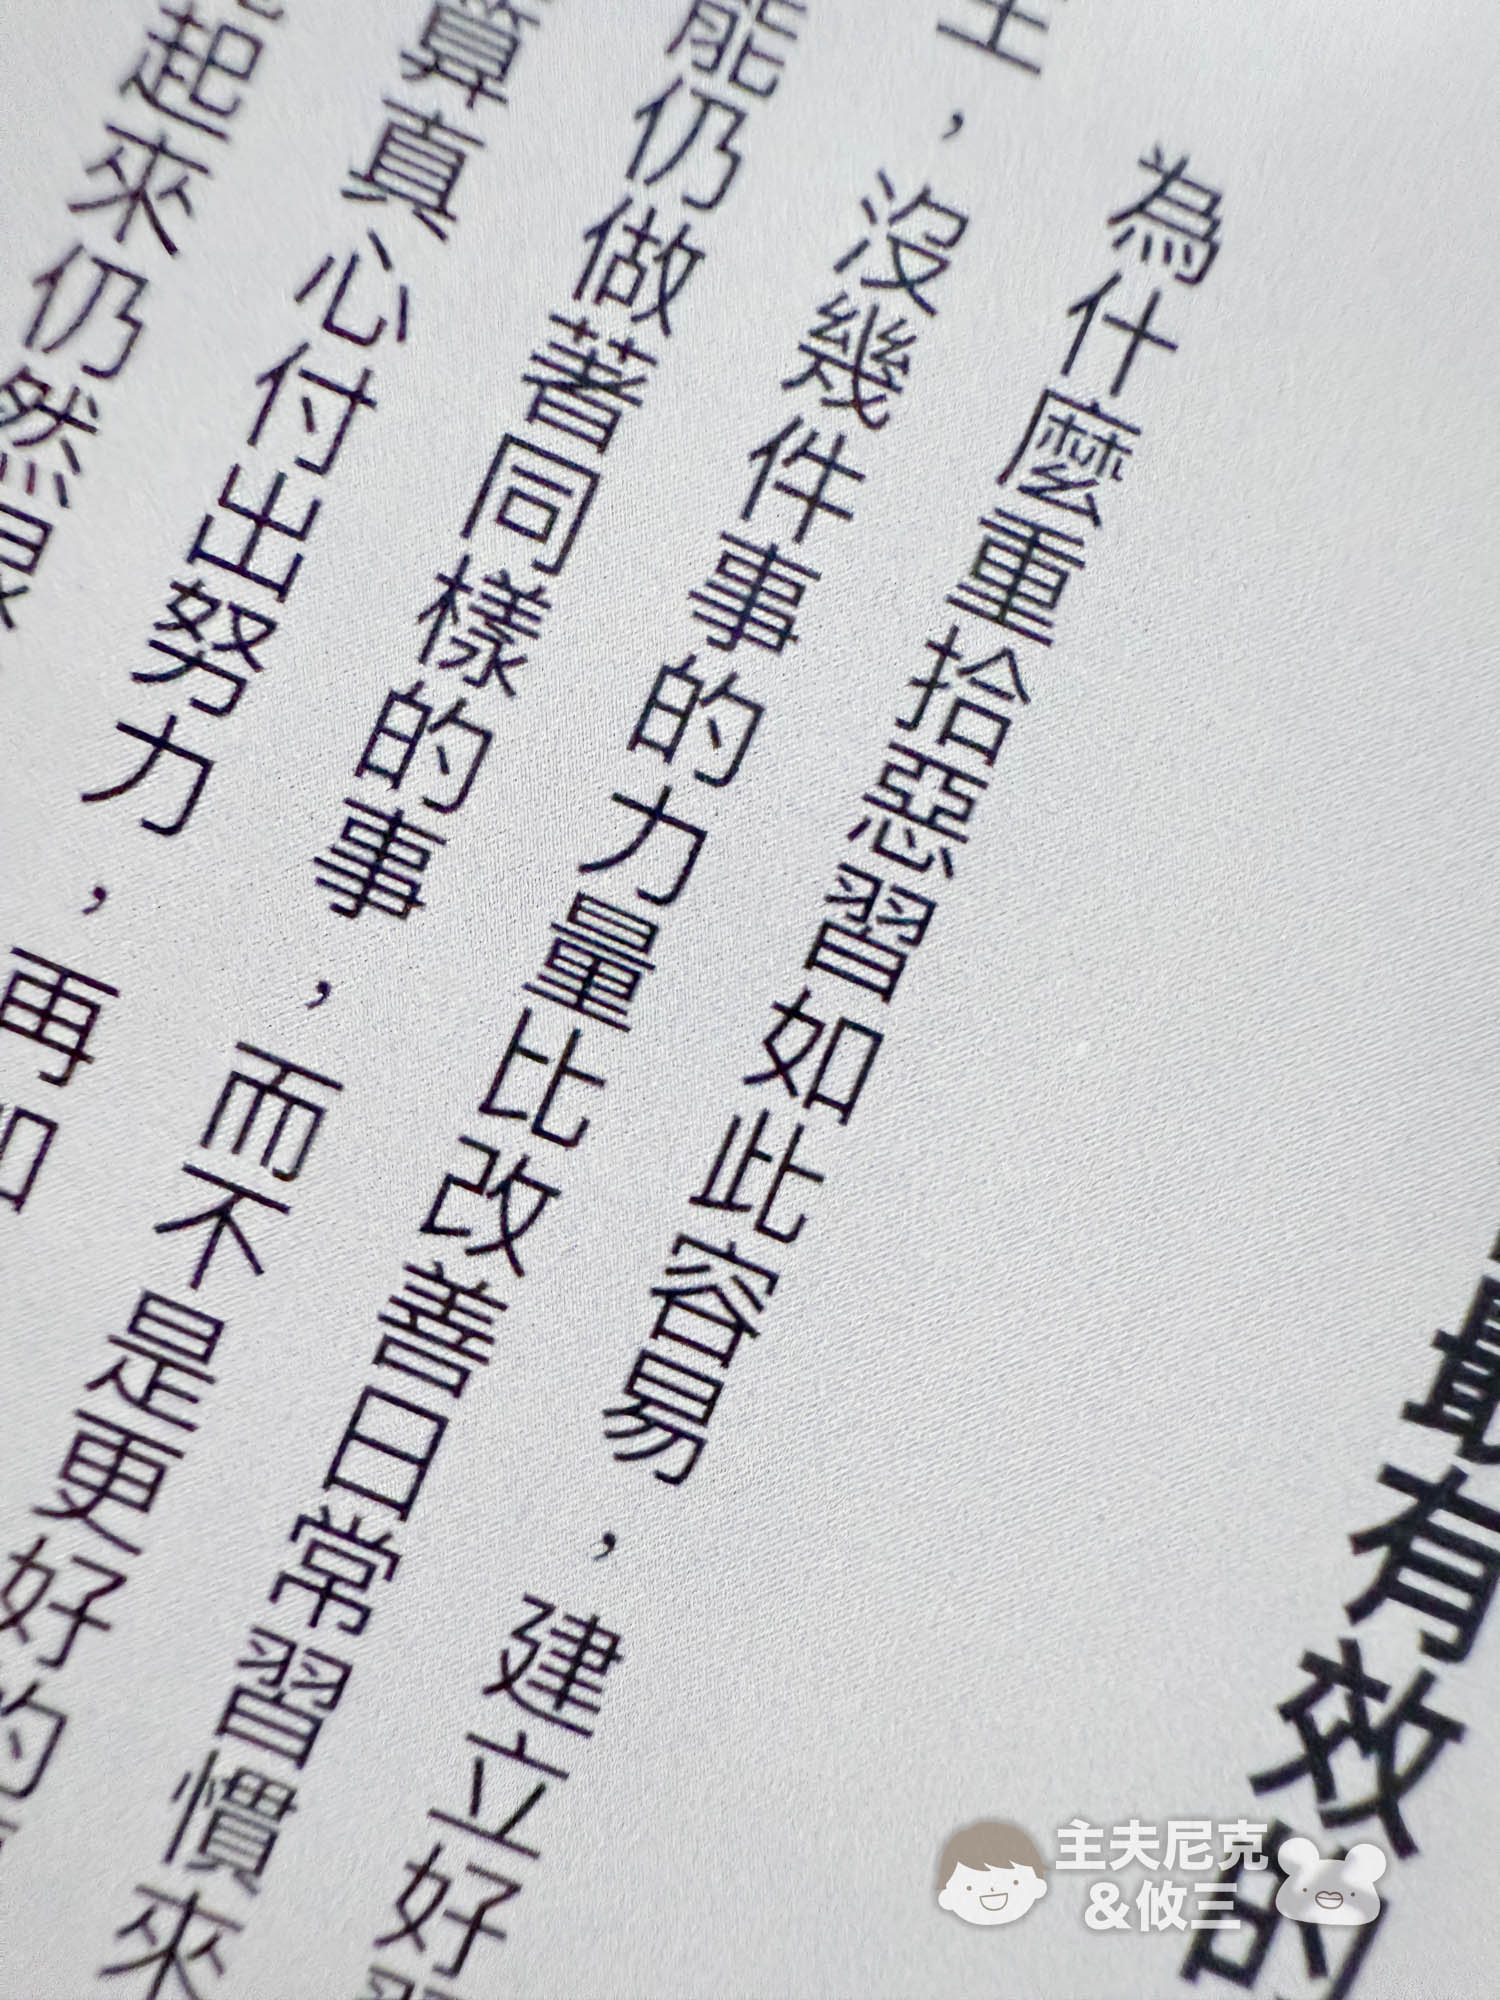 最有效的
為什麼重拾惡習如此容易，建立好
，沒幾件事的力量比改善日常習慣來
能仍做著同樣的事，而不是更好的
算真心付出努力，再
起來仍然很
主夫尼克
&攸三